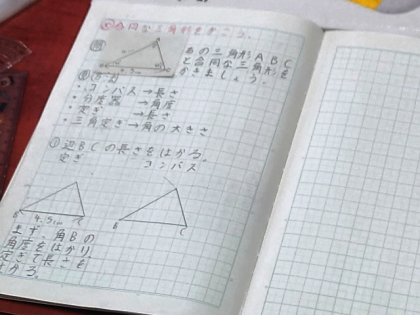 合同な三角形をかこう。
あの三角形ABC
と合同な三角形を
かきましょう。
・コンパス→長さ
・分度器→角度
・定ぎ→長さ
・三角定ぎ→角の大きさ
① 辺BCの長さをはかる。
定ぎ コンパス
B 4.5cm C
B C
まず、角Bの
角度をはかり
定ぎで長さを
はかる。